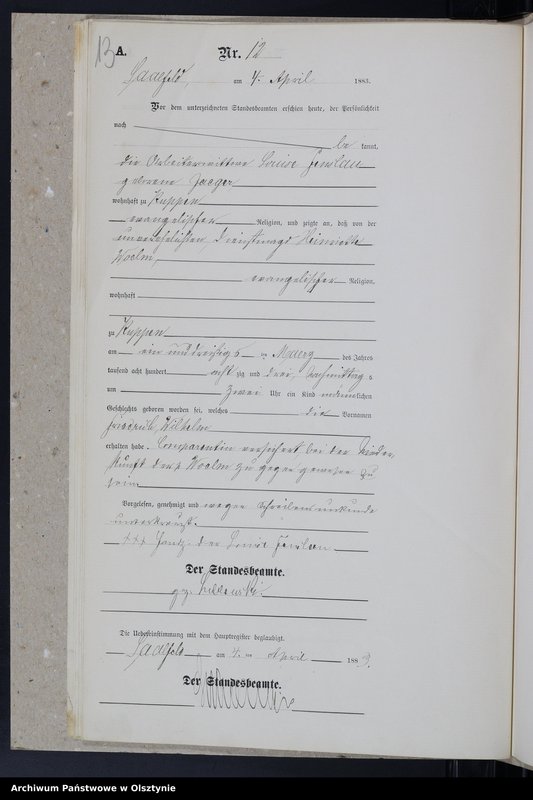 13 A. Nr. 12
Saalfeld, am 4. April 1883.
Vor dem unterzeichneten Standesbeamten erschien heute, der Persönlichkeit
nach
be kannt,
die Arbeiterwittwe Louise
geborene Jaeger
wohnhaft zu Kuppen
evangelischer Religion, und zeigte an, daß von der
unverehelichten, Dienstmagd Heinriette
Woelm,
evangelischer Religion,
wohnhaft
zu Kuppen
am ein und dreißigs ten Maerz des Jahres
tausend acht hundert acht zig und drei, Nachmittag s
um zwei Uhr ein Kind männlichen
Geschlechts geboren worden sei, welches die Vornamen
Friedrich, Wilhelm
erhalten habe. Comparentin versichert bei der Nieder
kunft der p Woelm zugegen gewesen zu
sein.
Vorgelesen, genehmigt und wegen Schreibensunkunde
unterkreuzt.
+++ Handz. der Louise
Der Standesbeamte.
gz.
Die Uebereinstimmung mit dem Hauptregister beglaubigt.
Saalfeld am 4. ten April 188 3.
Der Standesbeamte.
Archiwum Państwowe w Olsztynie